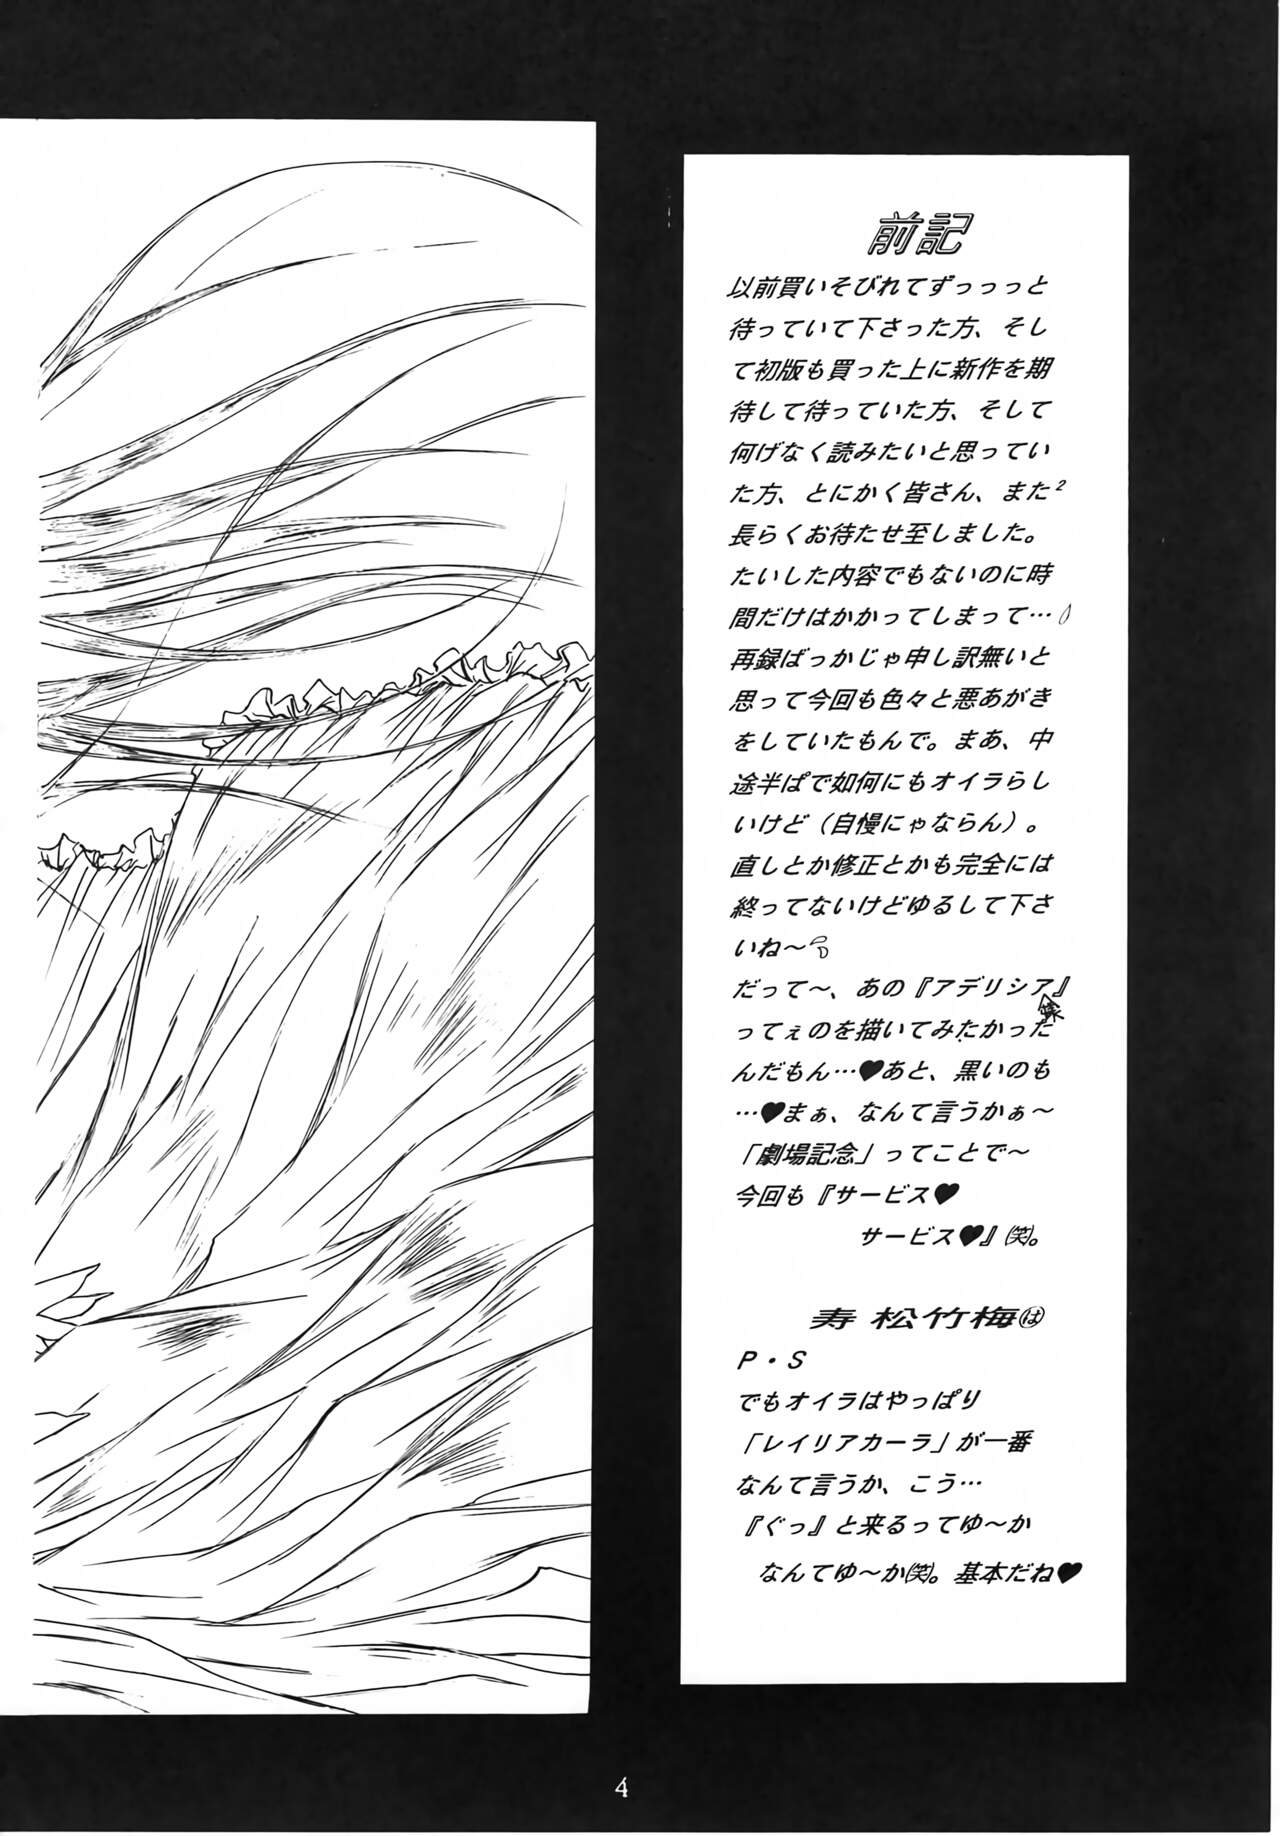 前記
以前買いそびれてずっっっと
待っていて下さった方、そし
て初版も買った上に新作を期
待して待っていた方、そして
何げなく読みたいと思ってい
た方、とにかく皆さん、また²
長らくお待たせ至しました。
たいした内容でもないのに時
間だけはかかってしまって…
再録ばっかじゃ申し訳無いと
思って今回も色々と悪あがき
をしていたもんで。まあ、中
途半ぱで如何にもオイラらし
いけど（自慢にゃならん）。
直しとか修正とかも完全には
終ってないけどゆるして下さ
いね〜
だって〜、あの『アデリシア』
ってぇのを描いてみたかった
んだもん…♥あと、黒いのも
…♥まぁ、なんて言うかぁ〜
「劇場記念」ってことで〜
今回も『サービス♥
サービス♥』㈶。
寿 松竹梅は
P・S
でもオイラはやっぱり
「レイリアカーラ」が一番
なんて言うか、こう…
『ぐっ』と来るってゆ〜か
なんてゆ〜か(笑)。基本だね♥
4